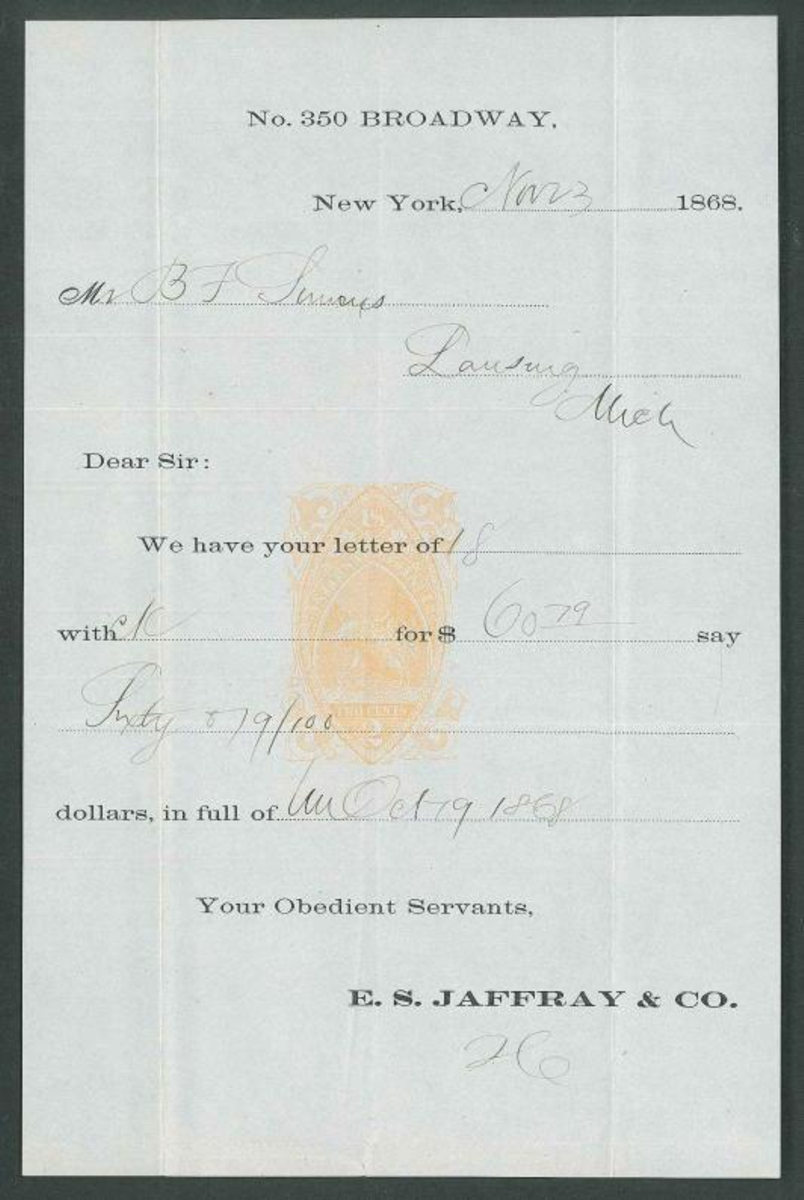 No. 350 BROADWAY,
New York, Nov 23 1868.
Mr B F Simons
Lansing
Mich
Dear Sir:
We have your letter of 18
with ck for $ 60 79 say
Sixty & 79/100
dollars, in full of Oct 19 1868
Your Obedient Servants,
E. S. JAFFRAY & CO.
TWO CENTS
2